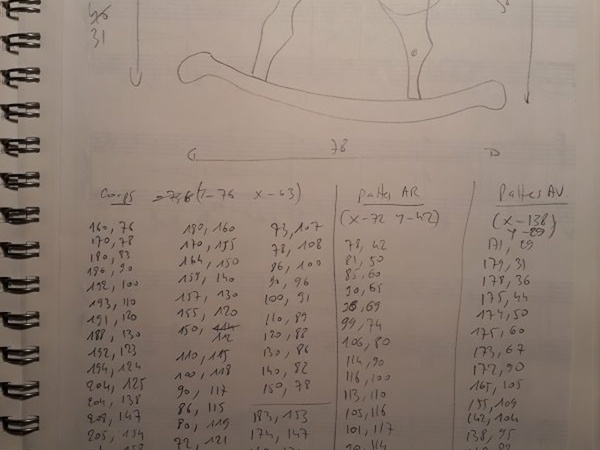 31
78
Corps
Pattes AR
Pattes AV
x-63)
(x-72 y-42)
(x-138)
y-29
160, 76 180, 160 73, 107
170, 78 170, 155 78, 108 78, 42 171, 29
180, 83 164, 150 86, 100 81, 50 179, 31
186, 90 159, 140 90, 96 85, 60 178, 36
192, 100 157, 130 100, 91 90, 65 175, 44
193, 110 155, 120 110, 89 96, 69 174, 50
191, 120 150, 112 120, 88 99, 74 175, 60
188, 130 110, 115 130, 86 106, 80 173, 67
192, 123 100, 118 140, 82 114, 90 172, 90
194, 124 90, 117 150, 78 116, 100 165, 105
204, 125 86, 115 113, 110 155, 109
204, 138 80, 119 183, 153 105, 116 142, 104
208, 147 72, 121 174, 147 101, 117 138, 95
205, 154